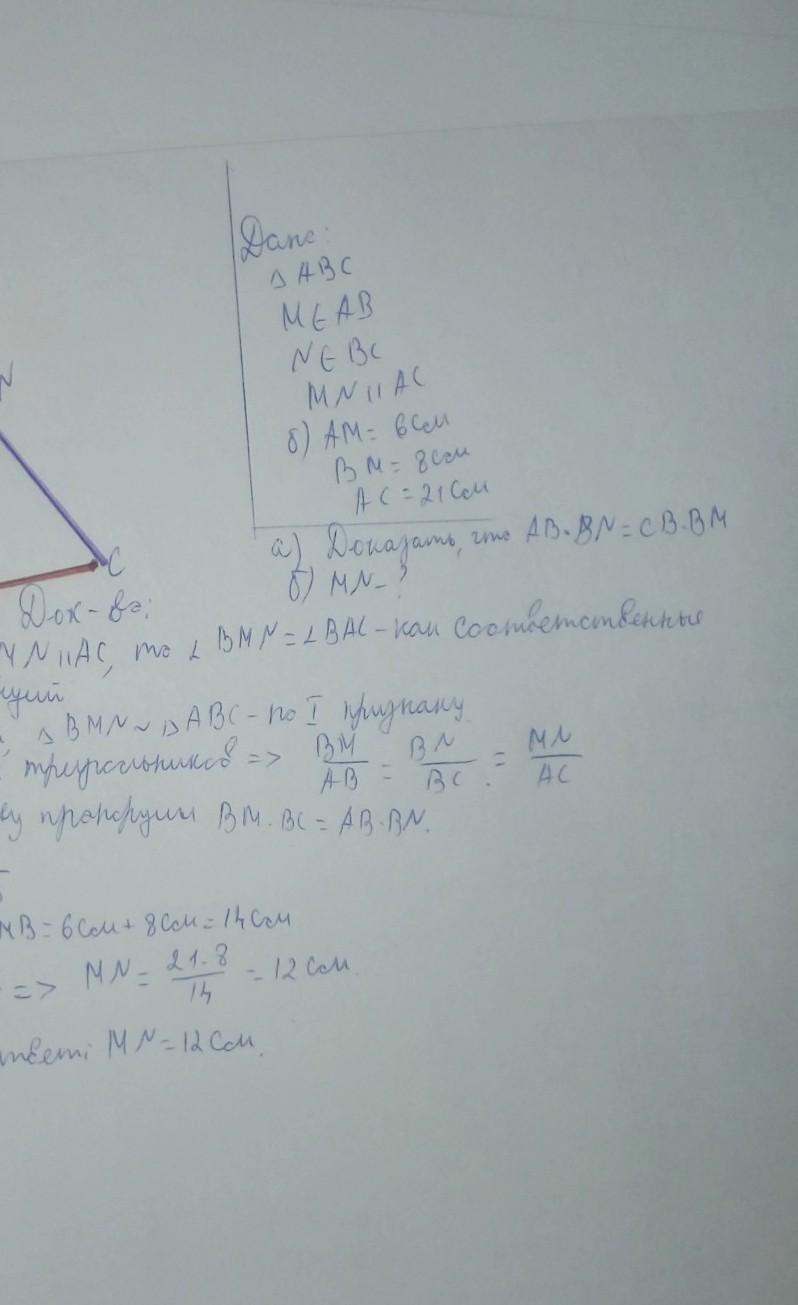 Дано:
△ ABC
M ∈ AB
N ∈ BC
MN || AC
N
б) AM = 6см
BM = 8см
AC = 21см
C
а) Доказать, что AB·BN = CB·BM
б) MN - ?
Док-во:
MN || AC, то ∠ BMN = ∠ BAC - как соответственные
△ BMN ~ △ ABC - по I признаку
треугольников => BM/AB = BN/BC = MN/AC
BM·BC = AB·BN.
MB = 6см + 8см = 14см
=> MN = 21·8/14 = 12см.
MN = 12см.